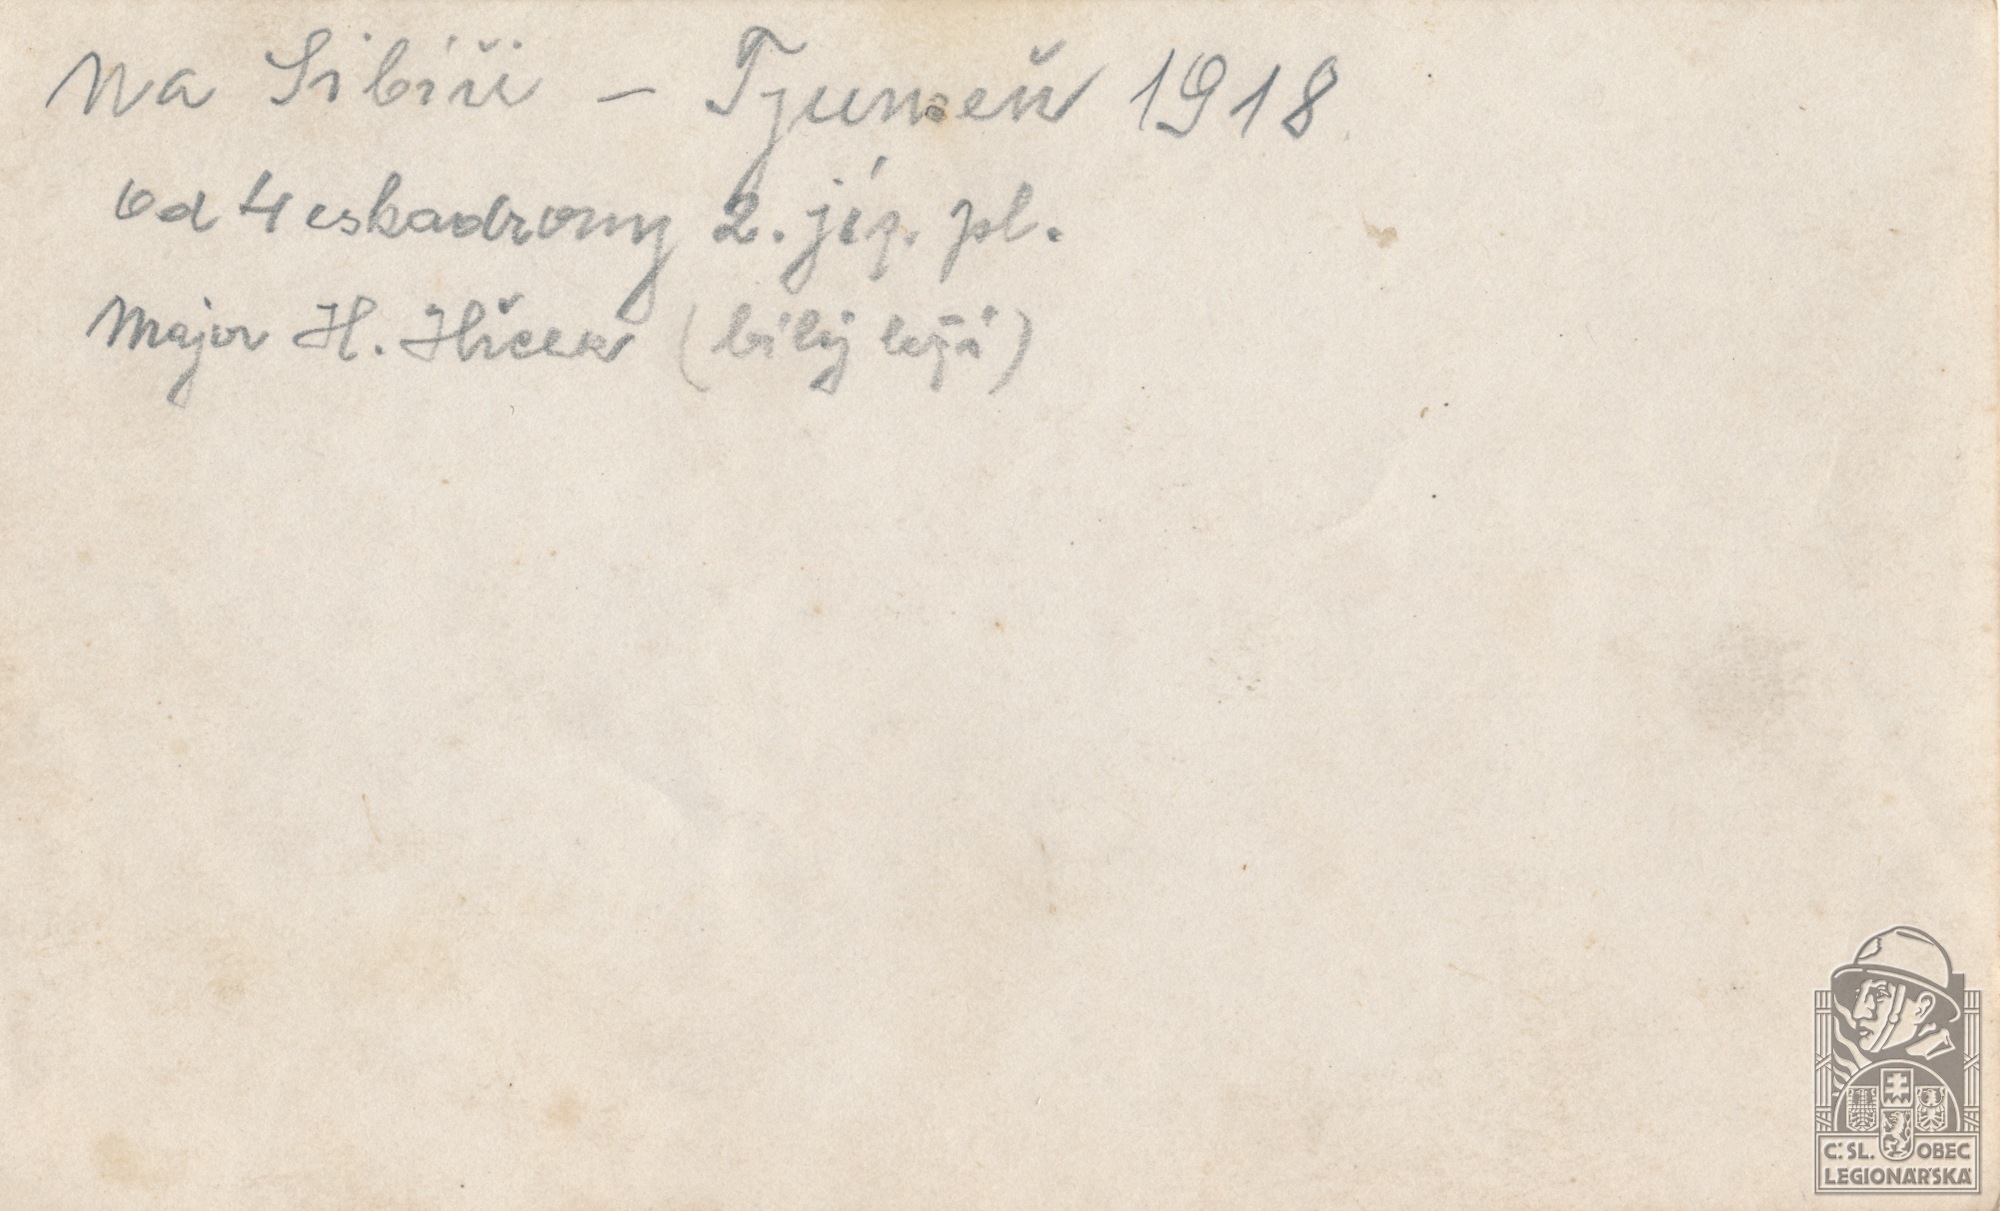 Na Sibíři – Tjumeň 1918
od 4 eskadrony 2. jíz. pl.
Major H. (bílý leží)
Č.SL. OBEC
LEGIONÁŘSKÁ